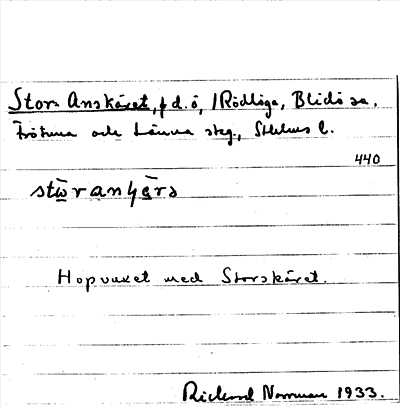 Stor Anskäret, f d. ö, i Rödlöga, Blidö sn.
Frötuna och Länna skg., Sthlms l.
440
Hopvuxet med Storskäret.
Rickard Norrman 1933.